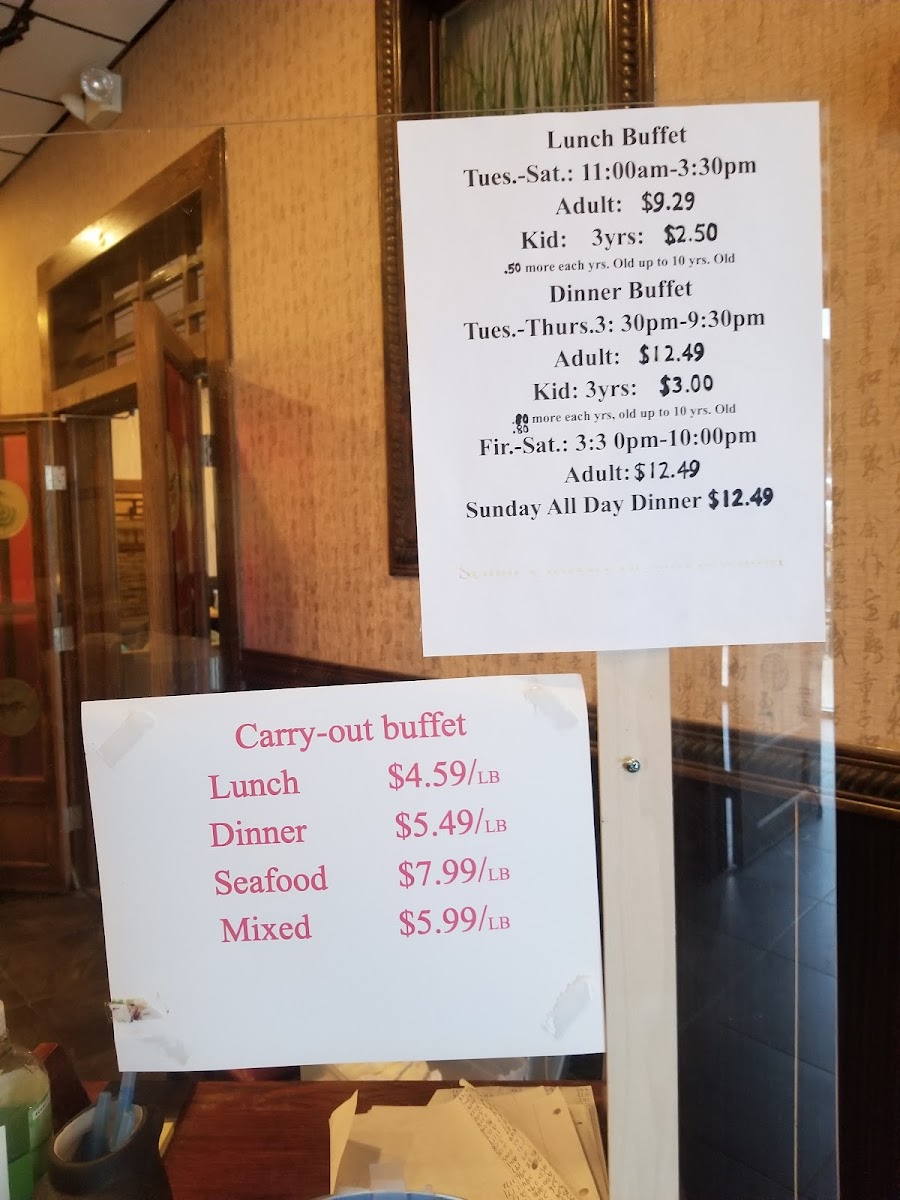 Lunch Buffet
Tues.-Sat.: 11:00am-3:30pm
Adult: $9.29
Kid: 3yrs: $2.50
.50 more each yrs. Old up to 10 yrs. Old
Dinner Buffet
Tues.-Thurs.3: 30pm-9:30pm
Adult: $12.49
Kid: 3yrs: $3.00
.80 more each yrs, old up to 10 yrs. Old
Fir.-Sat.: 3:3 0pm-10:00pm
Adult: $12.49
Sunday All Day Dinner $12.49
Carry-out buffet
Lunch $4.59/LB
Dinner $5.49/LB
Seafood $7.99/LB
Mixed $5.99/LB